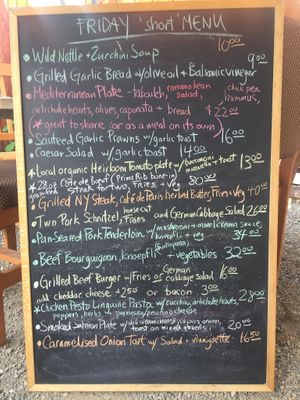 FRIDAY 'short' MENU
• Wild Nettle + Zucchini Soup 10.00
• Grilled Garlic Bread w/ olive oil + Balsamic vinegar 9.00
• Mediterranean Plate - taboulèh, romano bean salad, chick pea hummus,
artichoke hearts, olives, caponata + bread $22.00
(* great to share (or as a meal on its own)
• Sauteed Garlic Prawns w/ garlic toast 16.00
• Caesar Salad w/ garlic toast 14.00
• local organic Heirloom Tomato plate w/ bocconcini mozzarella + toast 13.00
* 28 oz Côte de beef (Prime Rib bone-in) steak for two, Fries + Veg 80.00
• Grilled NY Steak, café de Paris herbed Butter, Fries + Veg 40.00
• Two Pork Schnitzel, Fries and German Cabbage Salad 26.00
• Pan-Seared Pork Tenderloin w/ mushroom + morel cream sauce, knoepfli + veg 34.00
• Beef Bourguignon, Knoepfli + vegetables 32.00
• Grilled Beef Burger w/ Fries or German cabbage Salad 16.00
add cheddar cheese +2.50 or bacon 3.00
* Chicken Pesto Linguine Pasta w/ zucchini, artichoke hearts,
peppers, herbs + parmesan/pecorino cheese 28.00
• Smoked Salmon Plate w/ dill cream cheese, capers, onion, toast on mixed greens 20.00
• Caramelised Onion Tart w/ Salad + vinaigrette 16.50